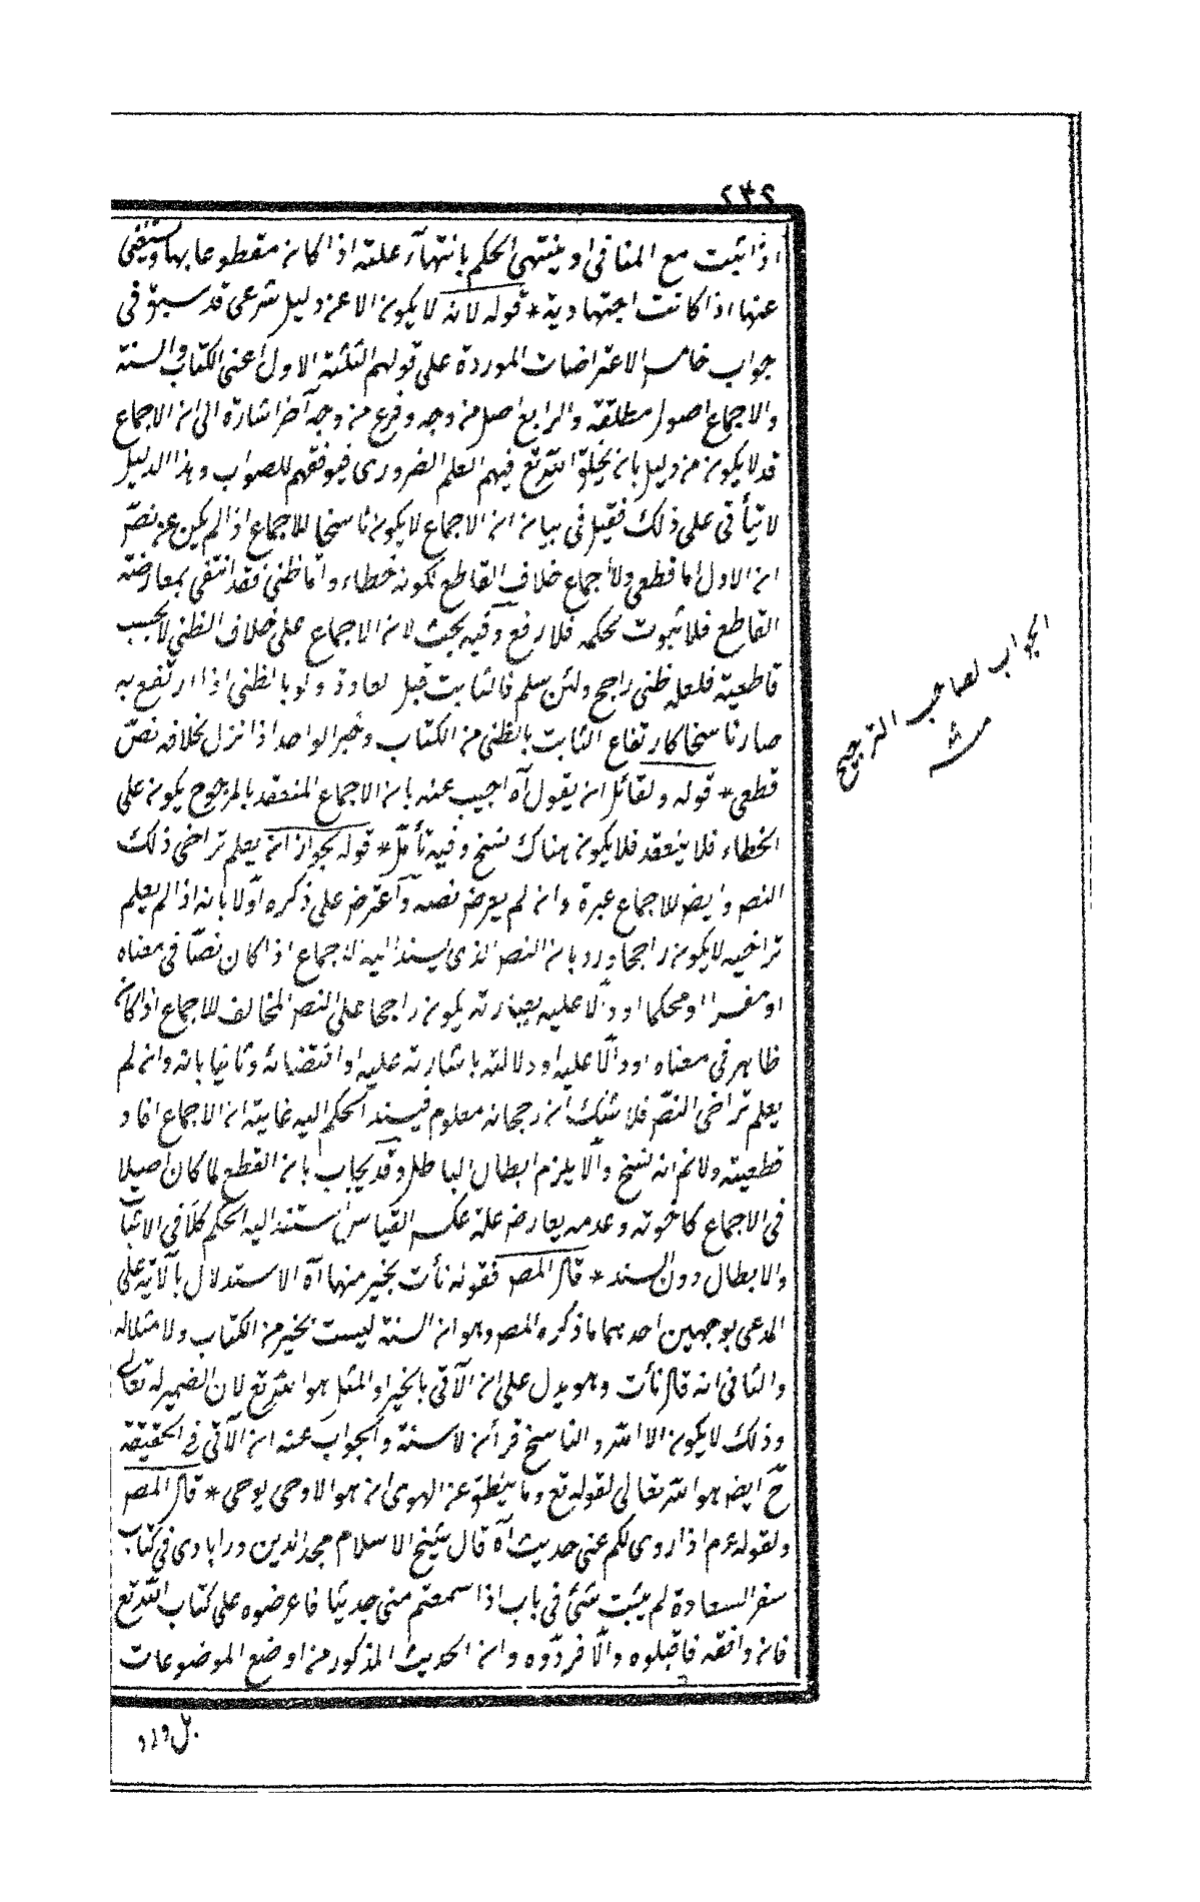 ٢٣٢
اذا ثبت مع المنافى او ينتهى الحكم بانتهآء علته اذا كان مقطوعا بها ويستغنى
عنها اذا كانت اجتهادية * قوله لانه لا يكون الا عن دليل شرعى قد سبق فى
جواب خامس الاعتراضات الموردة على قولهم الثلثة الاول اعنى الكتاب والسنة
والاجماع اصول مطلقة والرابع اصل من وجه وفرع من وجه آخر اشارة الى ان الاجماع
قد لا يكون من دليل بان يخلق الله تع فيهم العلم الضرورى فيوفقهم للصواب وهذا الدليل
لا يتأتى على ذلك فقيل فى بيان ان الاجماع لا يكون ناسخا للاجماع اذا لم يكن عن نصّ
ان الاول اما قطعى ولا اجماع خلاف القاطع لكونه خطاء واما ظنى فقد انتفى بمعارضة
القاطع فلا ثبوت لحكمه فلا رفع وفيه بحث لان الاجماع على خلاف الظنى لا يجب
قاطعيته فلعله ظنى راجح ولئن سلم فالثابت قبل لعادة ولو بالظنى اذا ارتفع به
صار ناسخا كارتفاع الثابت بالظنى من الكتاب وخبر الواحد اذا نزل بخلافه نصّ
قطعى * قوله ولقائل ان يقول آه اجيب عنه بان الاجماع المنعقد بالمرجوح يكون على
الخطاء فلا ينعقد فلا يكون هناك نسخ وفيه تأمّل * قوله لجواز ان يعلم تراخى ذلك
النص وايض للاجماع عبرة وان لم يعرض نصه واعترض على ذكره اوّلا بانه اذا لم يعلم
تراخيه لا يكون راجحا ورد بان النص الذى يسند اليه الاجماع اذا كان نصّا فى معناه
او مفسرا او محكما او دالّا عليه بعبارته يكون راجحا على النص المخالف للاجماع اذا كان
ظاهر فى معناه او دالّا عليه او دلالته باشارته عليه او اقتضائه وثانيا بانه وان لم
يعلم تراخى النصّ فلا شك ان رجحانه معلوم فيسند الحكم اليه غايته ان الاجماع افاد
قطعيته ولا نم انه نسخ والّا يلزم ابطال الباطل وقد يجاب بان القطع لما كان اصيلا
فى الاجماع كاخوته وعدمه بعارض علة عكس القياس استند اليه الحكم كلّا فى الاثبات
والابطال دون السند * قال المص فقوله نأت بخير منها آه الاستدلال بالآية على
المدعى بوجهين احدهما ما ذكره المص وهو ان السنة ليست بخير من الكتاب ولا مثلا له
والثانى انه قال نأت وهو يدل على ان الآتى بالخير او المثل هو الله تع لان الضمير له تعالى
وذلك لا يكون الا الله والناسخ قرأن لا سنة والجواب عنه ان الآتى فى الحقيقة
حّ ايض هو الله تعالى لقوله تع وما ينطق عن الهوى ان هو الا وحى يوحى * قال المص
ولقوله عرم اذا روى لكم عنى حديث آه قال شيخ الاسلام مجد الدين ورابادى فى كتاب
سفر السعادة لم يثبت شئ فى باب اذا سمعتم منى حديثا فاعرضوه على كتاب الله تع
فان وافقه فاقبلوه والّا فردّوه وان الحديث المذكور من اوضع الموضوعات
بل ورد
الجواب لصاحب الترجيح